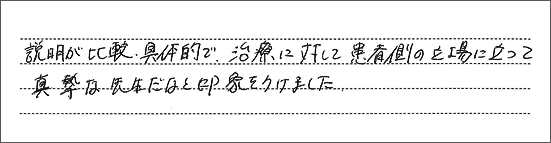 説明が比較、具体的で、治療に対して患者側の立場に立って
真摯な先生だなと印象をうけました。